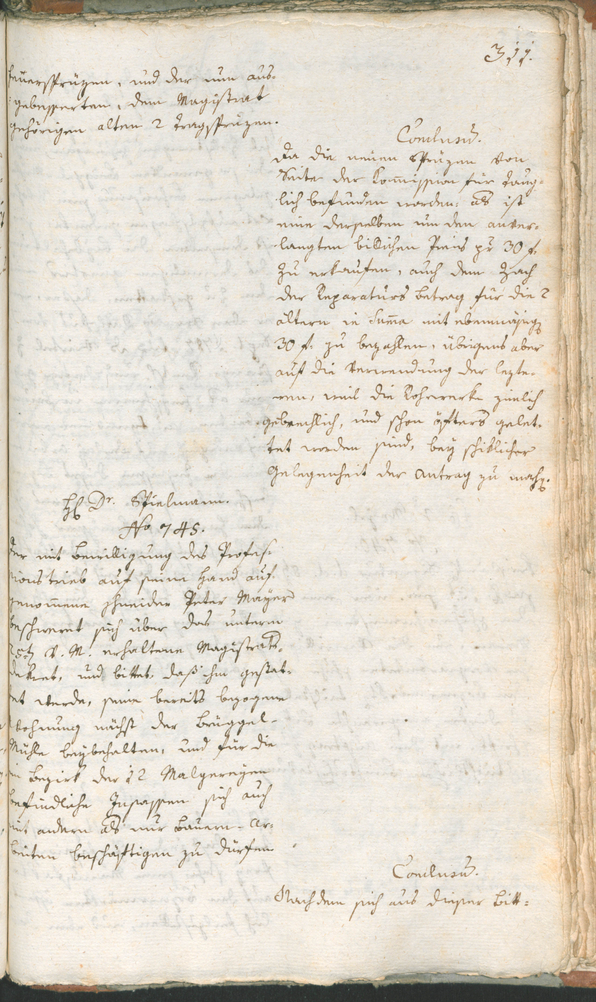 311.
feuersprüzen, und der nun aus-
gebesserten, dem Magistrat
gehörigen alten 2 tragsprüzen.
Conclusum.
Da die neuen Sprüzen von
Seite der Kommission für taug-
lich befunden worden: als ist
eine derselben um den anver-
langten billichen Preis pr 30 f.
zu erkaufen, auch dem
der Reparaturs betrag für die 2
ältern in Summa mit ebenmäßig
30 f. zu bezahlen, übrigens aber
auf die Verwendung der lezte-
ren, weil die Rohrwerke zimlich
gebrechlich, und schon öfters gelet-
tet worden sind, bey schiklicher
Gelegenheit der Antrag zu machen.
H. Dr. Spielmann.
No 745.
Der mit Bewilligung des Profess-
ionstrieb auf seine Hand auf-
genommene Schneider Peter Mayer
beschweret sich über das unterm
25ten d. M. erhaltene Magistrats-
dekret, und bittet, daß ihm gestat-
tet werde, seine bereits bezogene
Wohnung nächst der Brüggel-
Mühle beyzubehalten, und für die
im Bezirk der 12 Malgereyen
befindliche Insassen sich auch
mit andern als nur Bauern-Ar-
beiten beschäftigen zu dürfen
Conclusum.
Nachdem sich aus dieser Bitt-